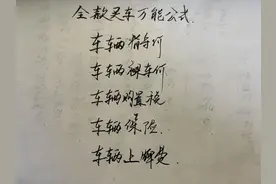 全款买车万能公式.
车辆指导价
车辆裸车价
车辆购置税
车辆保险
车辆上牌费.